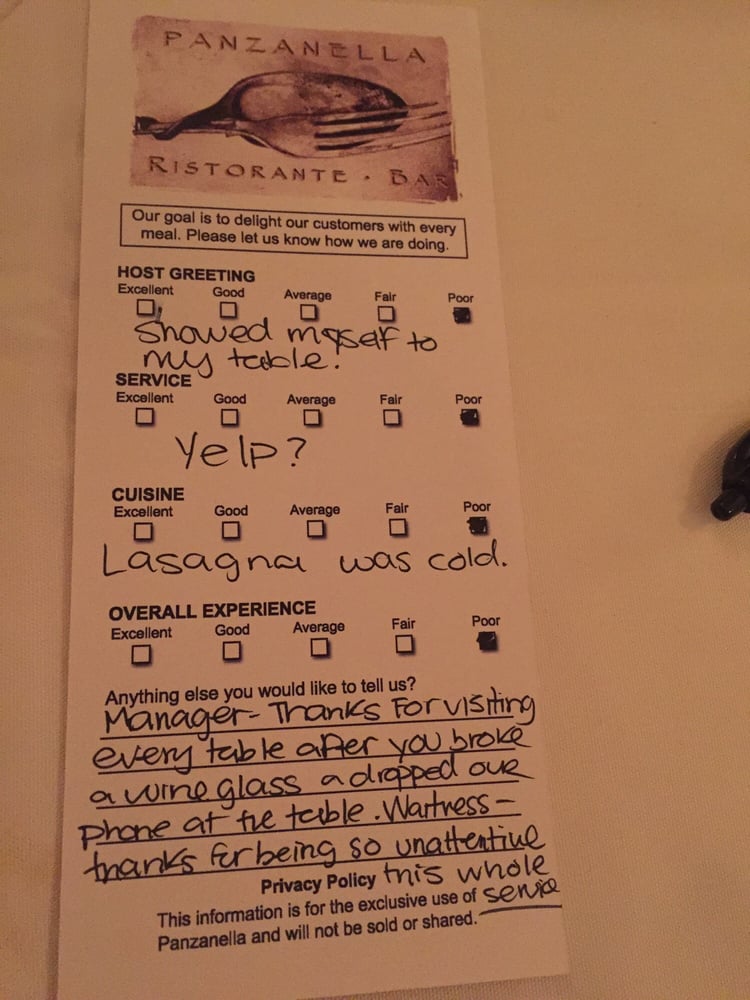 PANZANELLA
RISTORANTE • BAR
Our goal is to delight our customers with every
meal. Please let us know how we are doing.
HOST GREETING
Excellent Good Average Fair Poor
Showed myself to
my table.
SERVICE
Excellent Good Average Fair Poor
Yelp?
CUISINE
Excellent Good Average Fair Poor
Lasagna was cold.
OVERALL EXPERIENCE
Excellent Good Average Fair Poor
Anything else you would like to tell us?
Manager- Thanks for visiting
every table after you broke
a wine glass a dropped our
phone at the table. Waitress-
thanks for being so unattentive
Privacy Policy this whole
This information is for the exclusive use of service
Panzanella and will not be sold or shared.